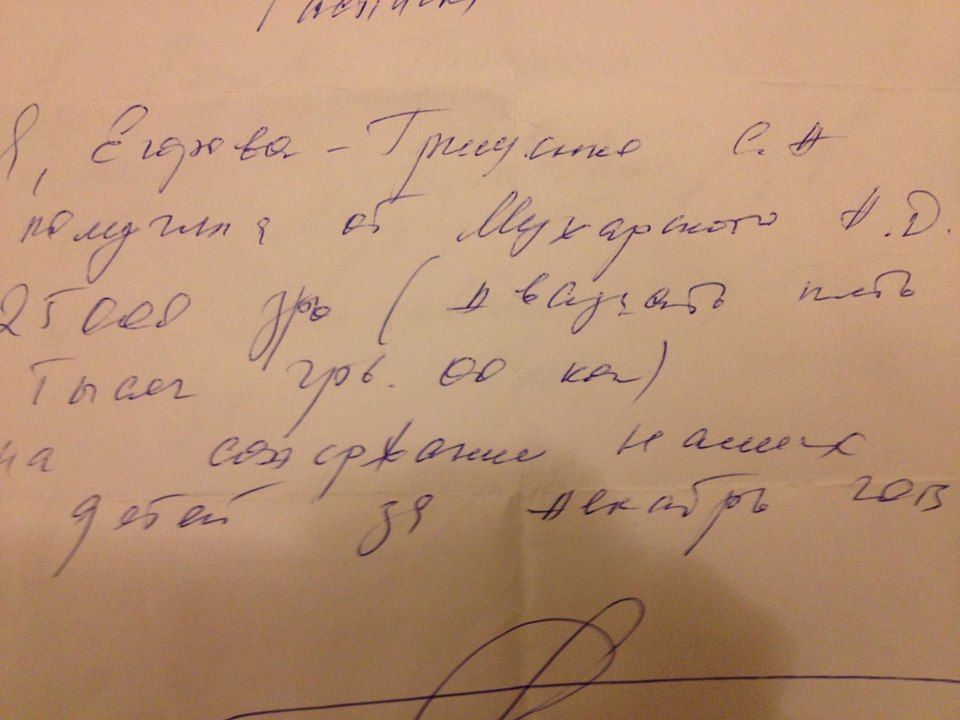 Расписка
Я, Егорова - С.А
получила от Мухарского А.Д.
25000 грн (двадцать пять
тысяч грв. 00 коп)
на содержание наших
детей за декабрь 2013